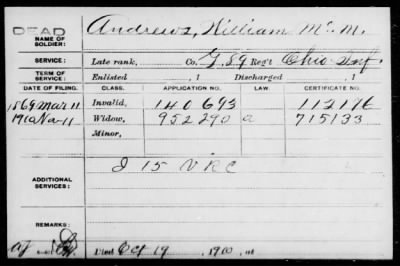 DEAD
NAME OF SOLDIER: Andrews, William Mc. M.
SERVICE: Late rank, Co. G, 89 Reg't Ohio Inf.
TERM OF SERVICE: Enlisted , 1 Discharged , 1
DATE OF FILING. CLASS. APPLICATION NO. LAW. CERTIFICATE NO.
1869 Mar 11 Invalid, 140693 112176
1910 Nov 11 Widow, 952290 a 715133
Minor,
ADDITIONAL SERVICES: I 15 V R C
REMARKS:
Died Oct 19, 1910, at